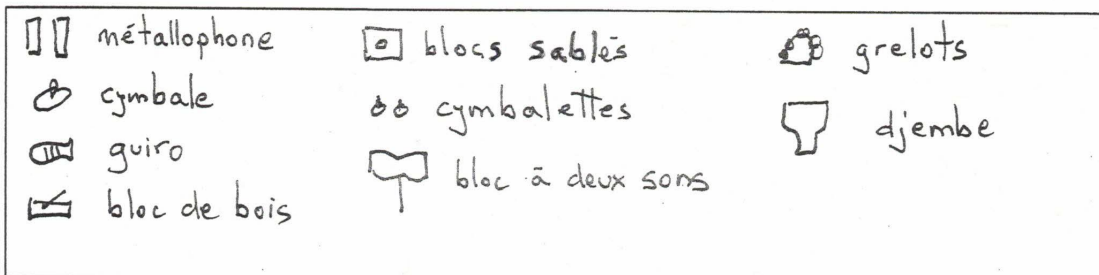 métallophone
cymbale
guiro
bloc de bois
blocs sablés
cymbalettes
bloc à deux sons
grelots
djembe